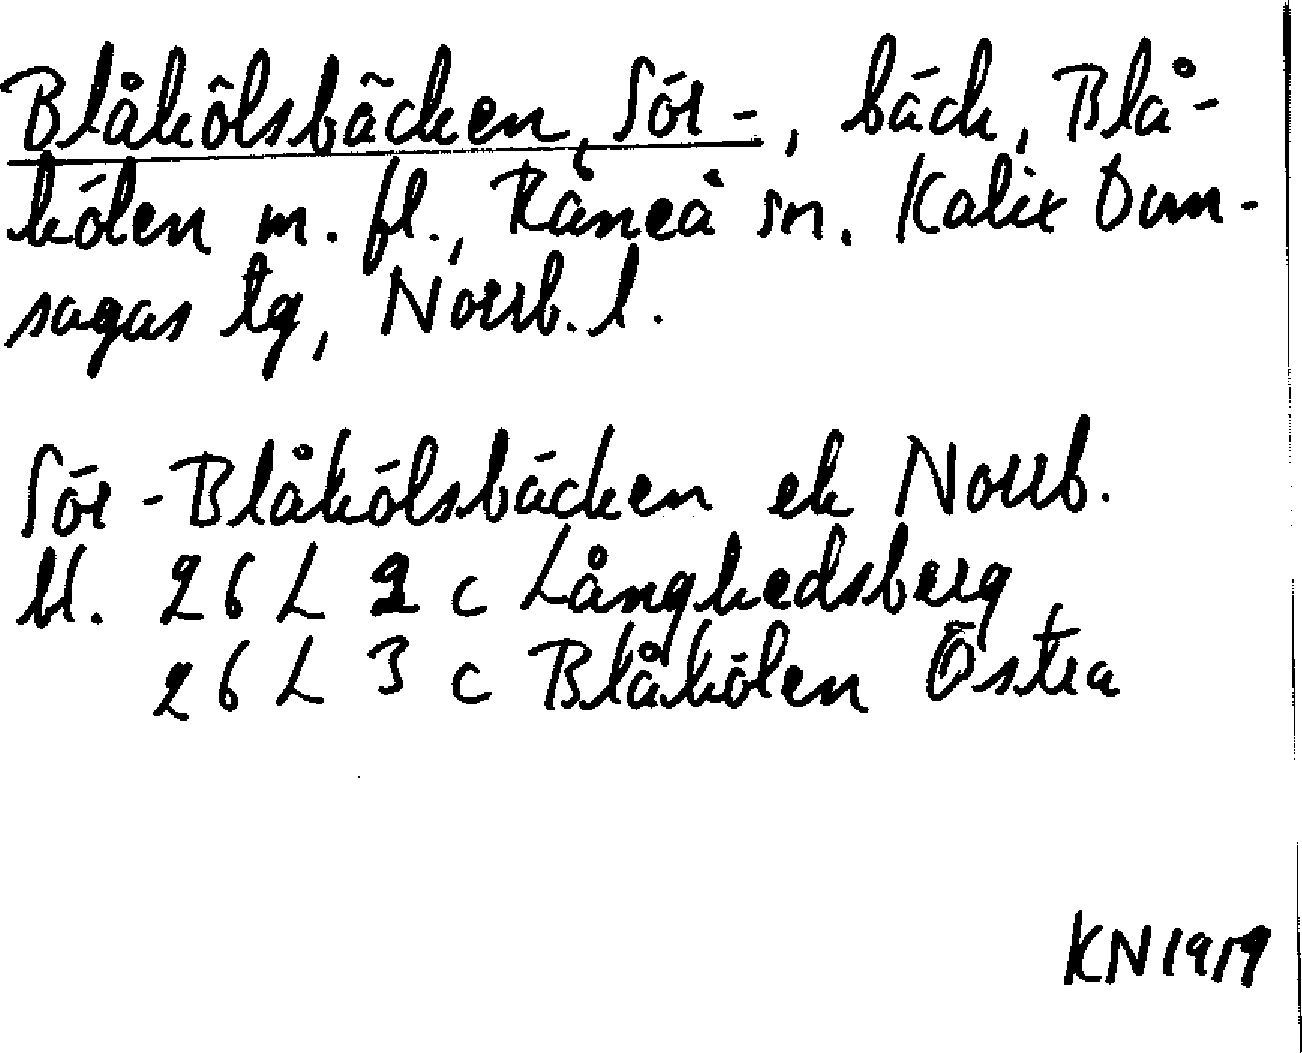 Blåkölsbäcken, Sör-, bäck, Blå-
kölen m. fl., Råneå sn. Kalix Dom-
sagas tg, Norrb. l.
Sör-Blåkölsbäcken ek Norrb.
bl. 26 L 2 c Långhedsberg
26 L 3 c Blåkölen Östra
KN 1979